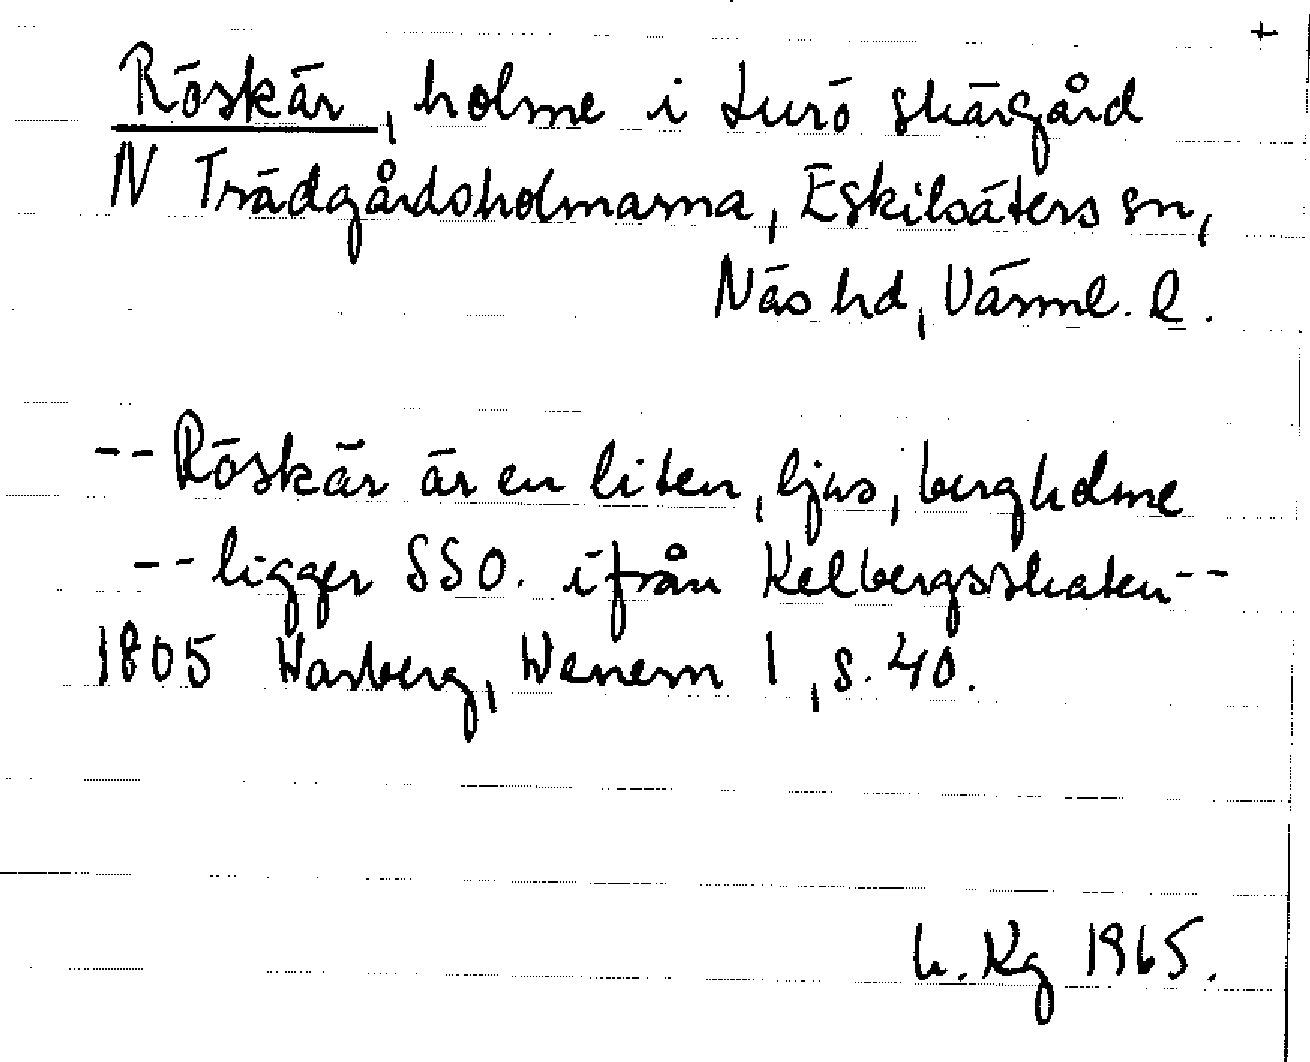 +
Röskär, holme i Lurö skärgård
N Trädgårdsholmarna, Eskilsäters sn,
Näs hd, Värml. l.
-- Röskär är en liten, ljus, bergholme
-- ligger SSO. ifrån Kelbergsskaten --
1805 Warberg, Wenern 1, s. 40.
h. Kg 1965.